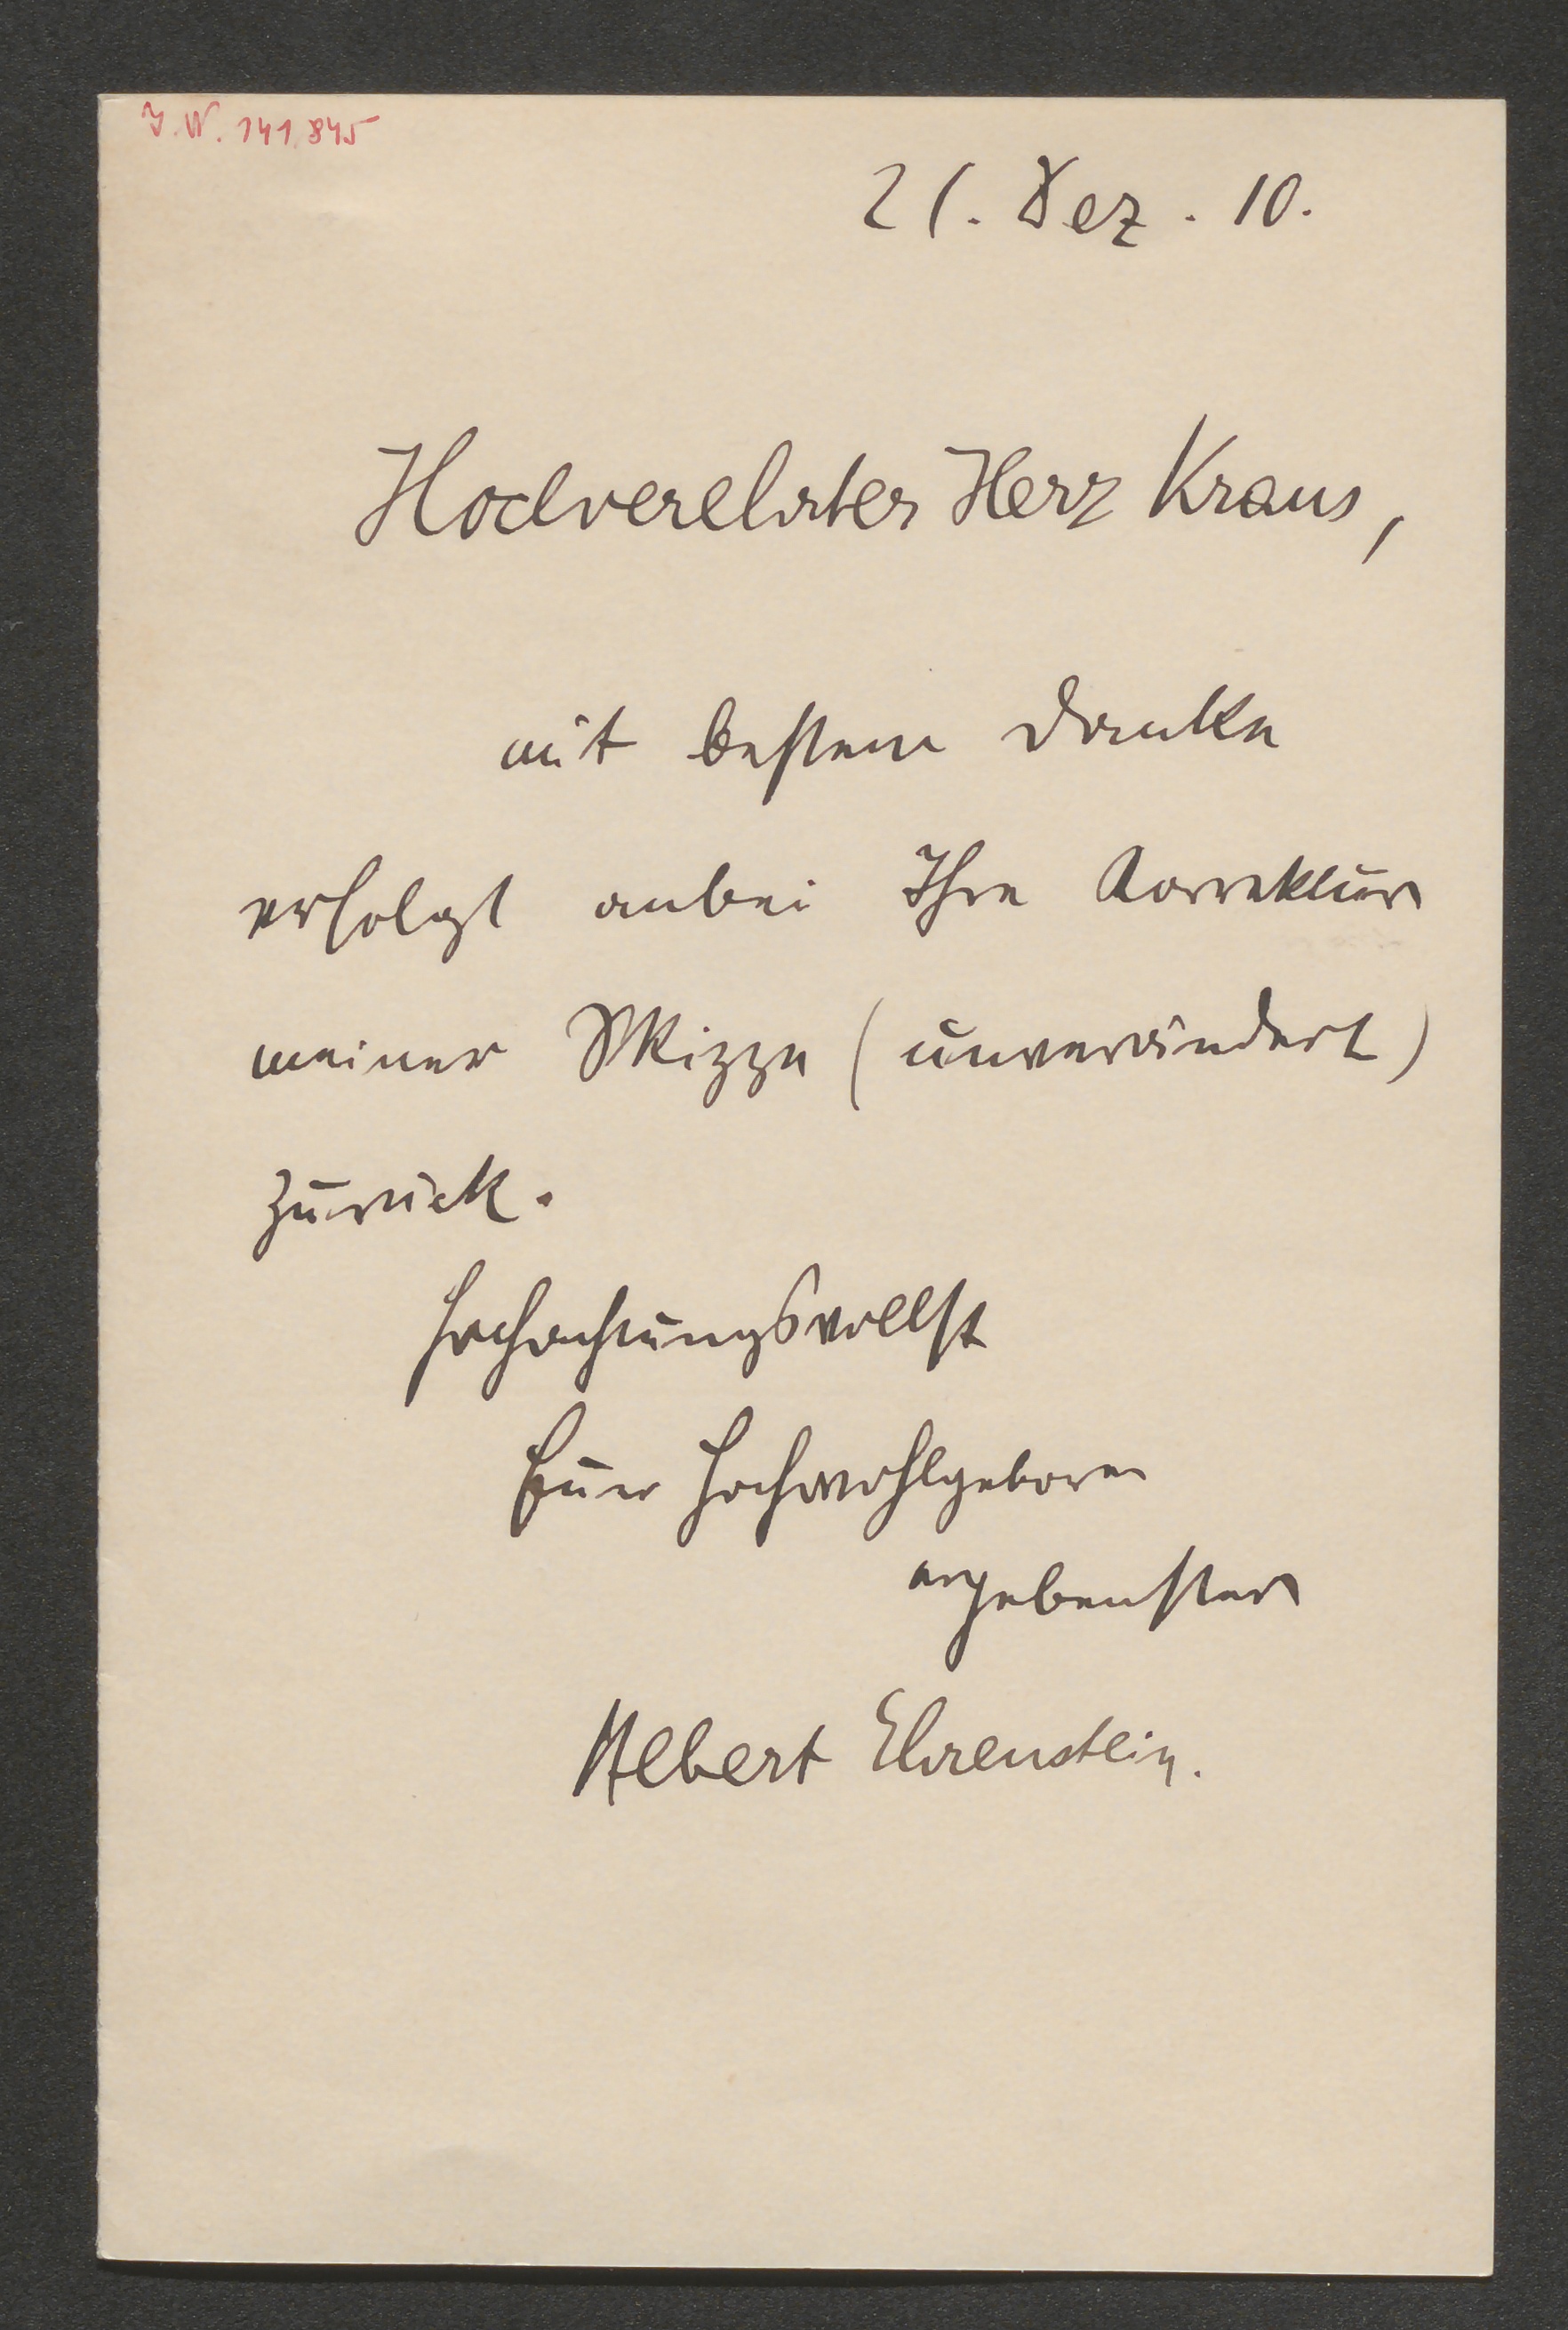 I.N. 141.845
21. Dez. 10.
Hochverehrter Herr Kraus,
mit bestem Danke
erfolgt anbei Ihre Korrektur
meiner Skizze (unverändert)
zurück.
Hochachtungsvollst
Euer Hochwohlgeboren
ergebenster
Albert Ehrenstein.